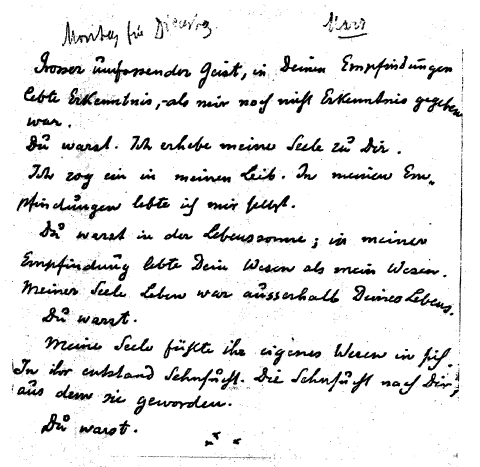 Montag für Dienstag Mars
Grosser umfassender Geist, in Deinen Empfindungen
lebte Erkenntnis, - als mir noch nicht Erkenntnis gegeben
war.
Du warst. Ich erhebe meine Seele zu Dir.
Ich zog ein in meinen Leib. In meinen Em-
pfindungen lebte ich mir selbst.
Du warst in der Lebenssonne; in meiner
Empfindung lebte Dein Wesen als mein Wesen.
Meiner Seele Leben war ausserhalb Deines Lebens.
Du warst.
Meine Seele fühlte ihr eigenes Wesen in sich.
In ihr entstand Sehnsucht. Die Sehnsucht nach Dir,
aus dem sie geworden.
Du warst.